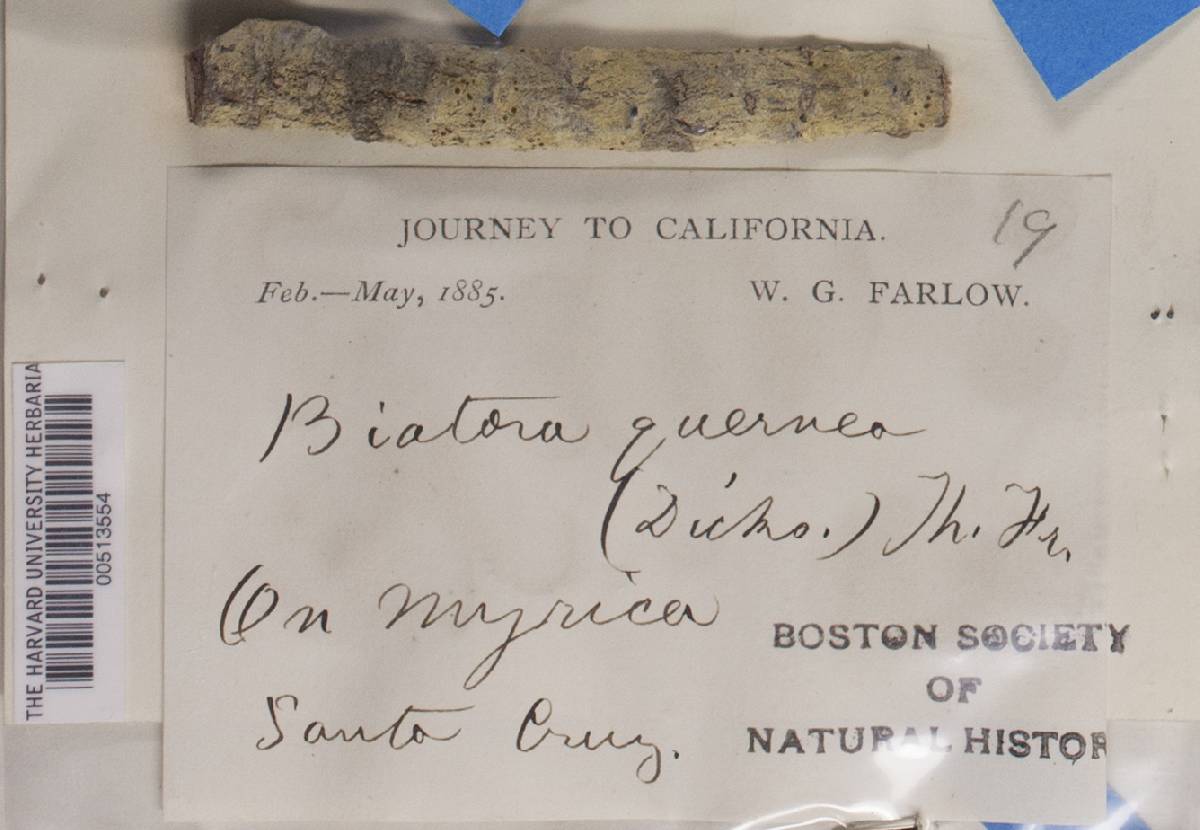 JOURNEY TO CALIFORNIA.
19
Feb.—May, 1885.
W. G. FARLOW.
Biatora quernea
(Dicks.) Th. Fr.
On Myrica
Santa Cruz.
BOSTON SOCIETY
OF
NATURAL HISTOR
THE HARVARD UNIVERSITY HERBARIA
00513554